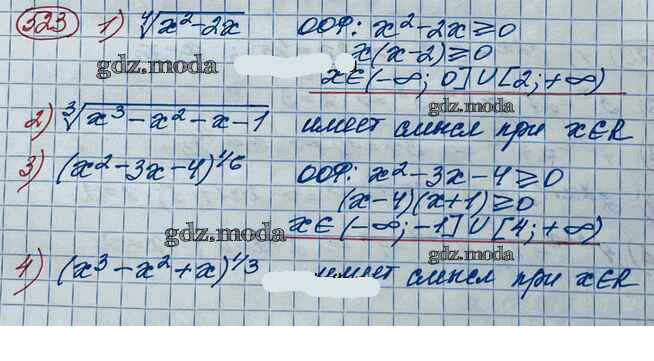 323 1) ∜(x²-2x) ООФ: x²-2x≥0
x(x-2)≥0
gdz.moda
x∈(-∞; 0]∪[2; +∞)
gdz.moda
2) ∛(x³-x²-x-1) имеет смысл при x∈R
3) (x²-3x-4)^1/6 ООФ: x²-3x-4≥0
(x-4)(x+1)≥0
x∈(-∞; -1]∪[4; +∞)
gdz.moda
gdz.moda
4) (x³-x²+x)^1/3 имеет смысл при x∈R
gdz.moda